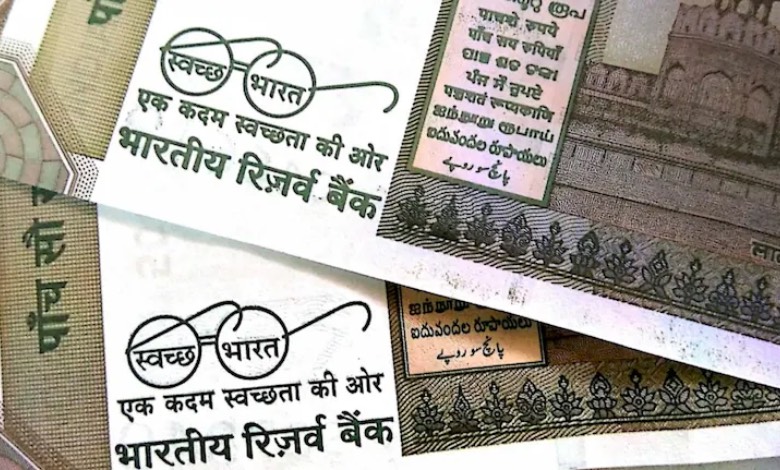 स्वच्छ भारत
एक कदम स्वच्छता की ओर
भारतीय रिज़र्व बैंक
രൂപ
पाचशे रुपये
पाँच सय रुपियाँ
ପାଞ୍ଚ ଶତ ଟଙ୍କା
ਪੰਜ ਸੌ ਰੁਪਏ
पञ्चशतं रूप्यकाणि
ஐந்நூறு ரூபாய்
ఐదువందల రూపాయలు
پانچ سو روپے
पांच सौ
स्वच्छ भारत
एक कदम स्वच्छता की ओर
भारतीय रिज़र्व बैंक
ஐந்நூறு ரூபாய்
ఐదువందల రూపాయలు
پانچ سو روپے